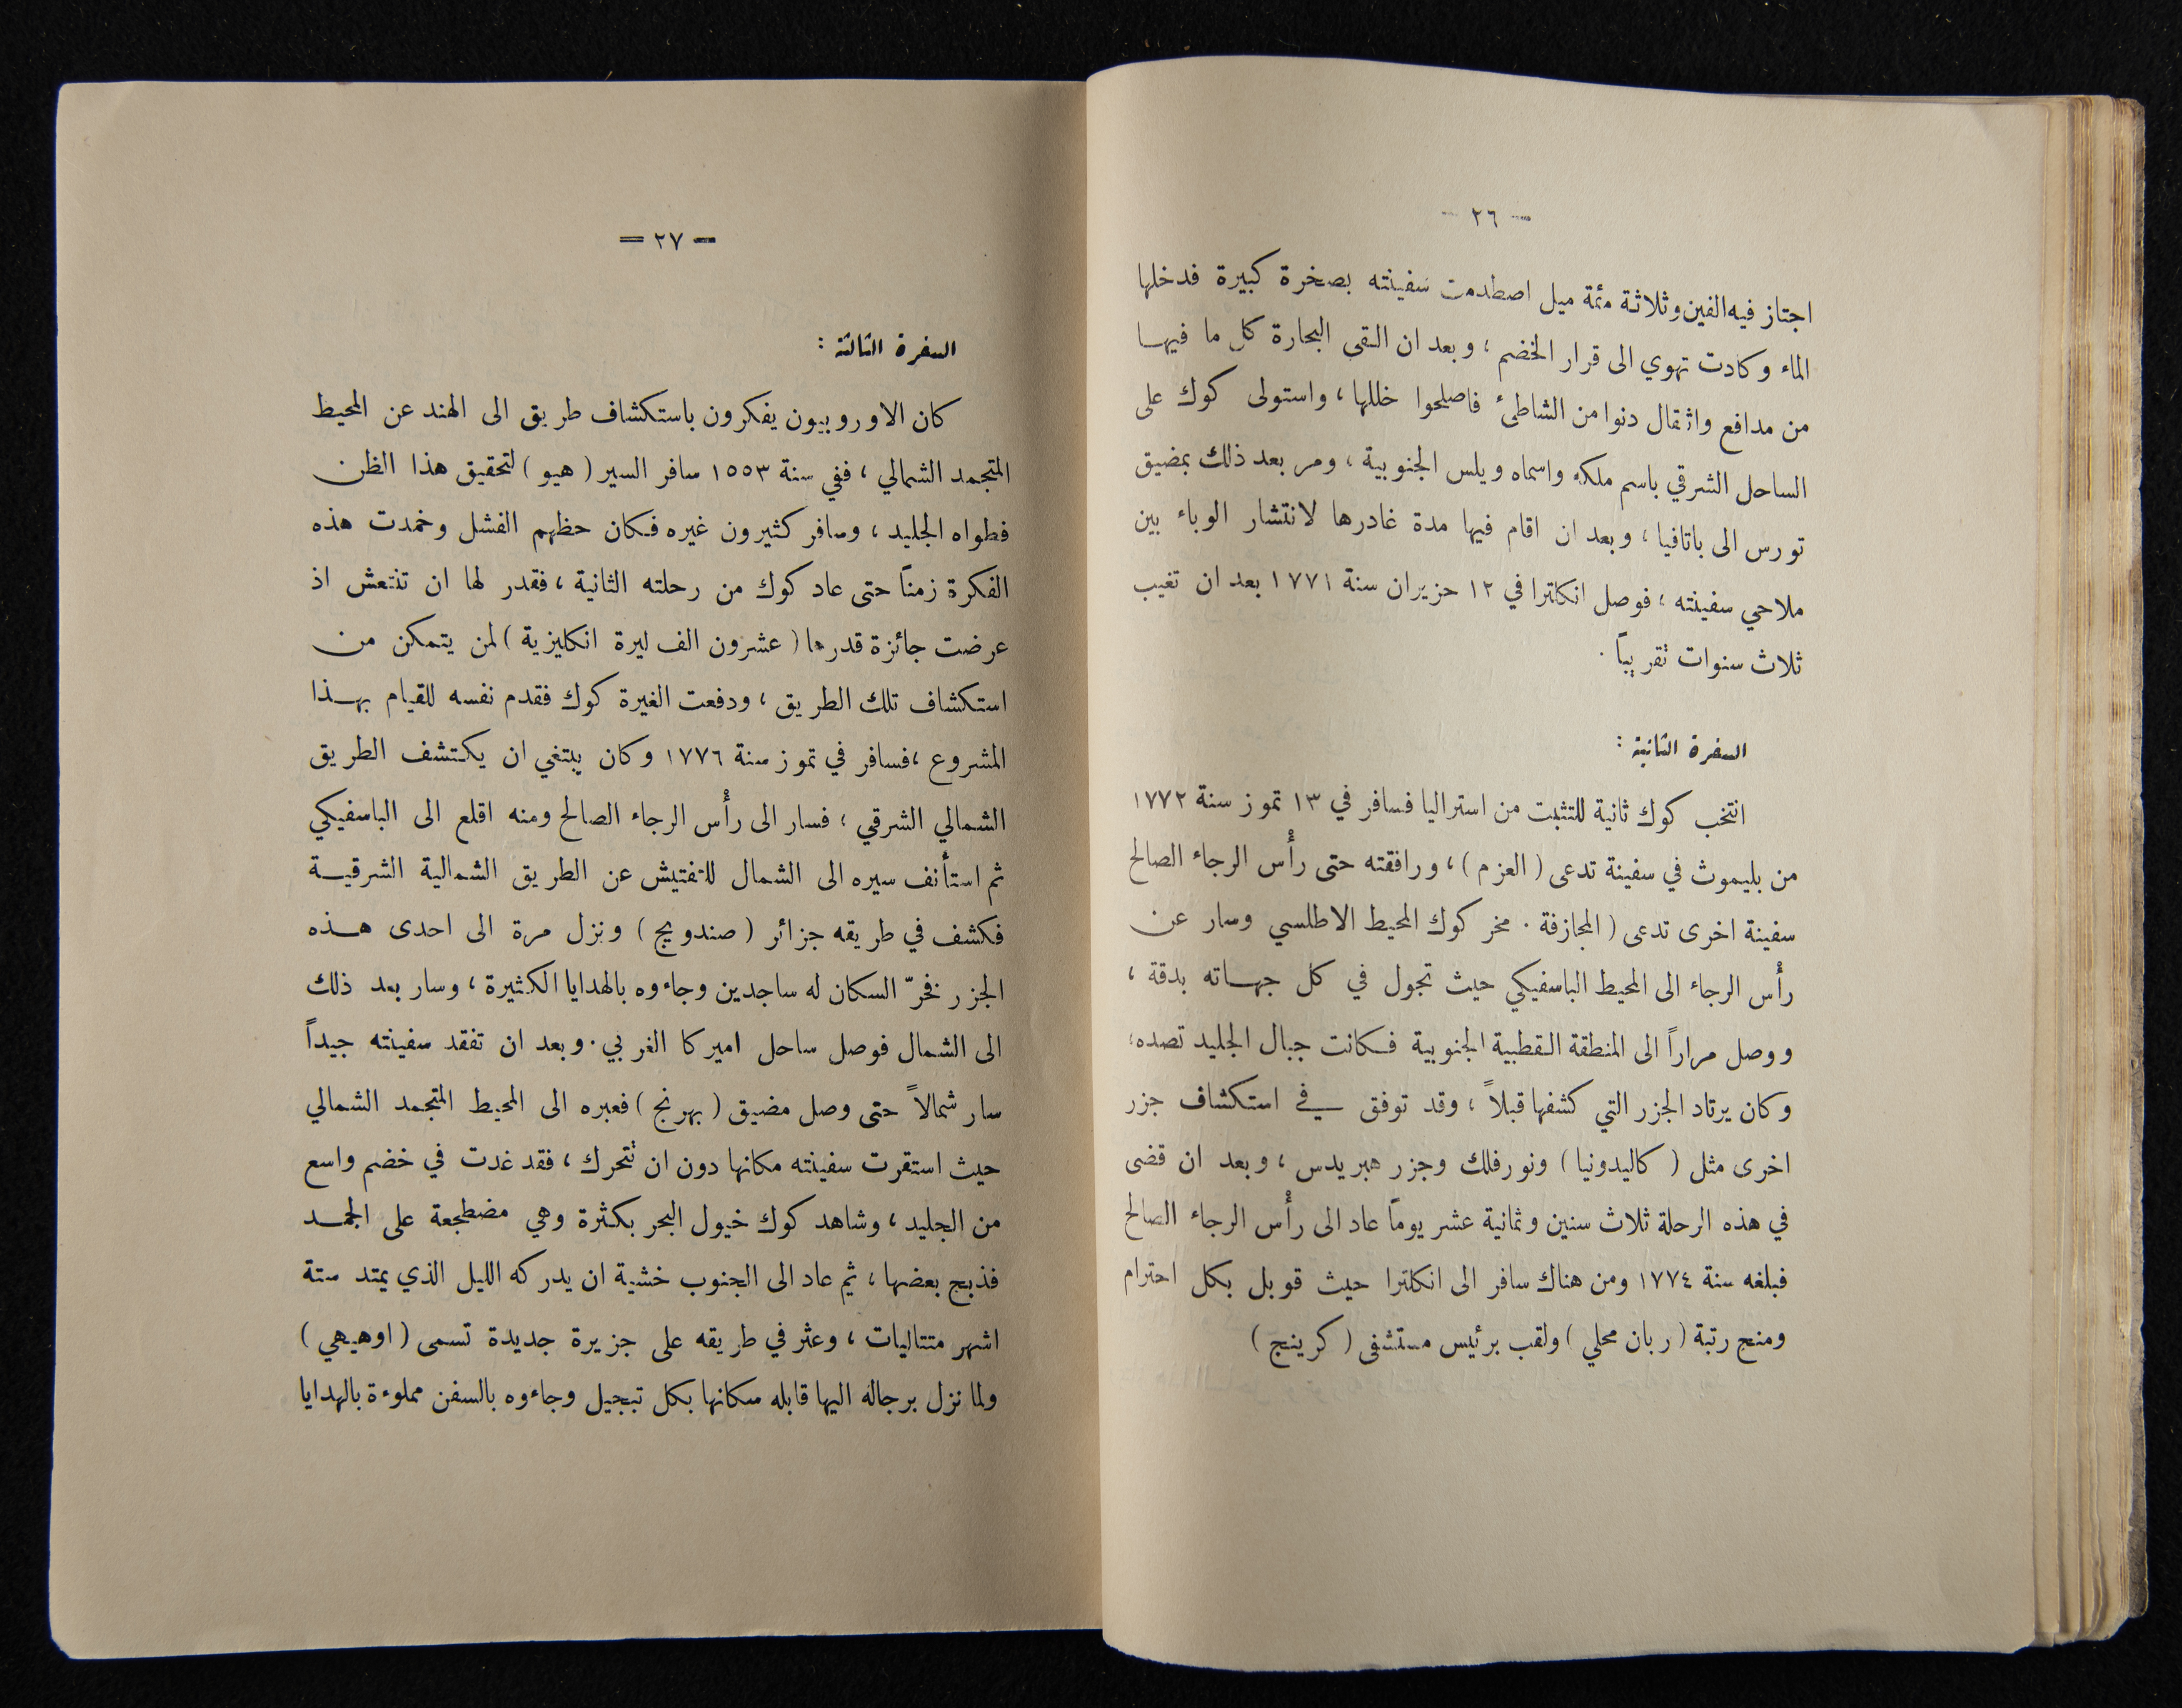 — ٢٦ —
اجتاز فيه الفين وثلاثة مئة ميل اصطدمت سفينته بصخرة كبيرة فدخلها
الماء وكادت تهوي الى قرار الخضم ، وبعد ان القى البحارة كل ما فيها
من مدافع واثقال دنوا من الشاطئ فاصلحوا خللها ، واستولى كوك على
الساحل الشرقي باسم ملكه واسماه ويلس الجنوبية ، ومر بعد ذلك بمضيق
تورس الى باتافيا ، وبعد ان اقام فيها مدة غادرها لانتشار الوباء بين
ملاحي سفينته ، فوصل انكلترا في ١٢ حزيران سنة ١٧٧١ بعد ان تغيب
ثلاث سنوات تقريباً .
السفرة الثانية :
انتخب كوك ثانية للتثبت من استراليا فسافر في ١٣ تموز سنة ١٧٧٢
من بليموث في سفينة تدعى ( العزم ) ، ورافقته حتى رأس الرجاء الصالح
سفينة اخرى تدعى ( المجازفة . مخر كوك المحيط الاطلسي وسار عن
رأس الرجاء الى المحيط الباسفيكي حيث تجول في كل جهاته بدقة ،
ووصل مراراً الى المنطقة القطبية الجنوبية فكانت جبال الجليد تصده ،
وكان يرتاد الجزر التي كشفها قبلاً ، وقد توفق في استكشاف جزر
اخرى مثل ( كاليدونيا ) ونورفلك وجزر هبريدس ، وبعد ان قضى
في هذه الرحلة ثلاث سنين وثمانية عشر يوماً عاد الى رأس الرجاء الصالح
فبلغه سنة ١٧٧٤ ومن هناك سافر الى انكلترا حيث قوبل بكل احترام
ومنح رتبة ( ربان محلي ) ولقب برئيس مستشفى ( كرينج )
— ٢٧ —
السفرة الثالثة :
كان الاوروبيون يفكرون باستكشاف طريق الى الهند عن المحيط
المتجمد الشمالي ، ففي سنة ١٥٥٣ سافر السير ( هيو ) لتحقيق هذا الظن
فطواه الجليد ، وسافر كثيرون غيره فكان حظهم الفشل وخمدت هذه
الفكرة زمناً حتى عاد كوك من رحلته الثانية ، فقدر لها ان تنتعش اذ
عرضت جائزة قدرها ( عشرون الف ليرة انكليزية ) لمن يتمكن من
استكشاف تلك الطريق ، ودفعت الغيرة كوك فقدم نفسه للقيام بهذا
المشروع ، فسافر في تموز سنة ١٧٧٦ وكان يبتغي ان يكتشف الطريق
الشمالي الشرقي ؛ فسار الى رأس الرجاء الصالح ومنه اقلع الى الباسفيكي
ثم استأنف سيره الى الشمال للتفتيش عن الطريق الشمالية الشرقية
فكشف في طريقه جزائر ( صندويج ) ونزل مرة الى احدى هذه
الجزر فخرّ السكان له ساجدين وجاءوه بالهدايا الكثيرة ، وسار بعد ذلك
الى الشمال فوصل ساحل اميركا الغربي . وبعد ان تفقد سفينته جيداً
سار شمالاً حتى وصل مضيق ( بهرنج ) فعبره الى المحيط المتجمد الشمالي
حيث استقرت سفينته مكانها دون ان تتحرك ، فقد غدت في خضم واسع
من الجليد ، وشاهد كوك خيول البحر بكثرة وهي مضطجعة على الجمد
فذبح بعضها ، ثم عاد الى الجنوب خشية ان يدركه الليل الذي يمتد ستة
اشهر متتاليات ، وعثر في طريقه على جزيرة جديدة تسمى ( اوهيهي )
ولما نزل برجاله اليها قابله سكانها بكل تبجيل وجاءوه بالسفن مملوءة بالهدايا